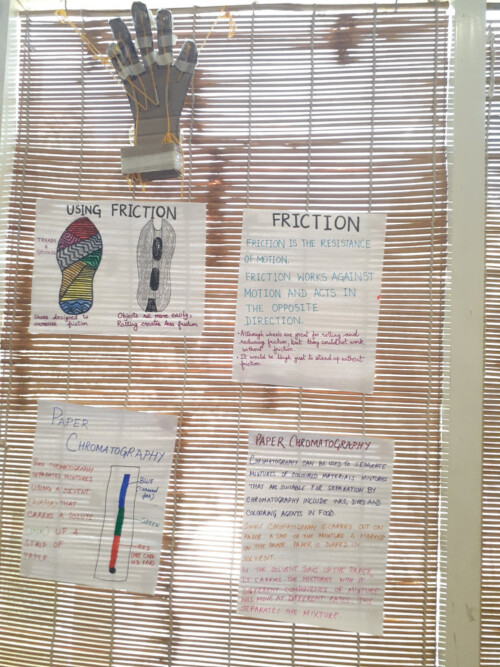 USING FRICTION
TREADS
&
Shoes designed to
increase friction
Objects move more easily,
Rolling creates less friction
FRICTION
FRICTION IS THE RESISTANCE
OF MOTION.
FRICTION WORKS AGAINST
MOTION AND ACTS IN
THE OPPOSITE
DIRECTION.
• Although wheels are great for rolling and
reducing friction, but they couldn't work
without friction
• It would be tough just to stand up without
friction
PAPER
CHROMATOGRAPHY
CHROMATOGRAPHY
SEPARATES MIXTURES
USING A SOLVENT
THAT
CARRIES A
UP A
STRIP OF
PAPER
BLUE
GREEN
RED
PAPER CHROMATOGRAPHY
CHROMATOGRAPHY CAN BE USED TO SEPARATE
MIXTURES OF COLOURED MATERIALS. MIXTURES
THAT ARE SUITABLE FOR SEPARATION BY
CHROMATOGRAPHY INCLUDE INKS, DYES AND
COLORING AGENTS IN FOOD.
CHROMATOGRAPHY IS CARRIED OUT ON
PAPER. A SPOT OF THE MIXTURE IS MARKED
ON THE PAPER. PAPER IS DIPPED IN
SOLVENT.
AS THE SOLVENT SOAKS UP THE PAPER,
IT CARRIES THE MIXTURES WITH IT.
DIFFERENT COMPONENTS OF MIXTURE
WILL MOVE AT DIFFERENT RATES. THIS
SEPARATES THE MIXTURE.